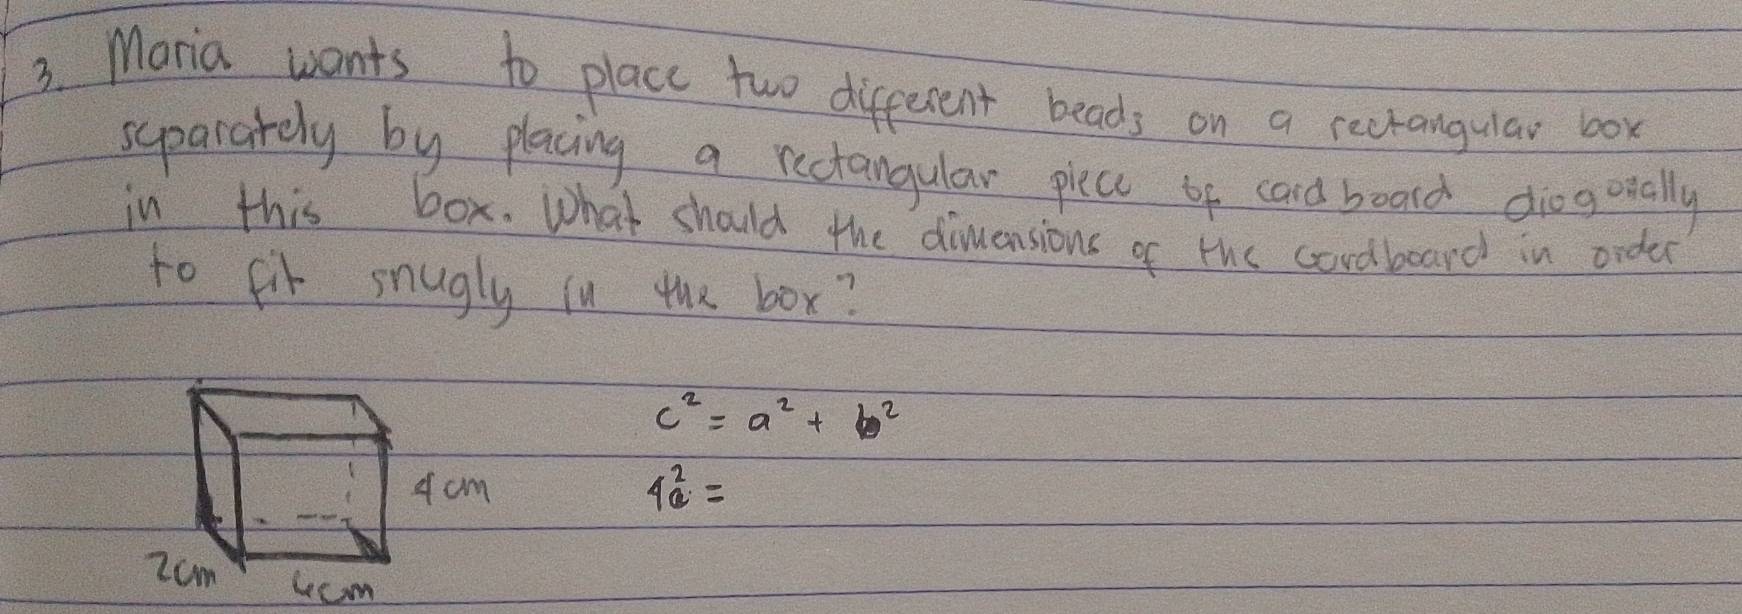 3. Maria wants to place two different beads on a rectangular box
separately by placing a rectangular piece of cardboard diagonally
in this box. What should the dimensions of the cardboard in order
to fit snugly in the box?
c² = a² + b²
4 cm
4² =
2cm
4cm